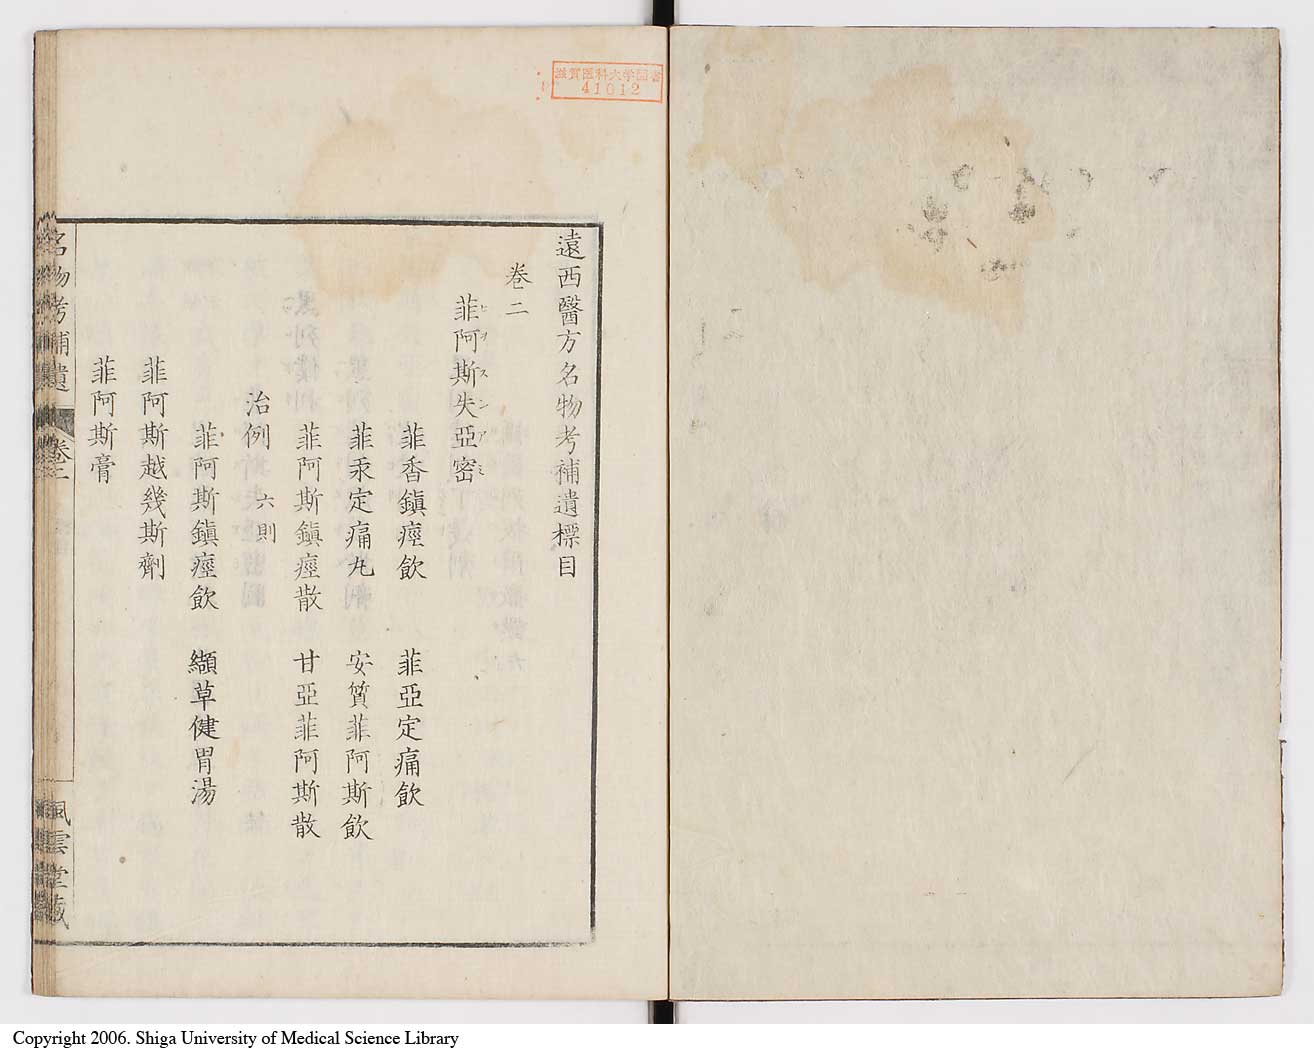 滋賀医科大学図書
41012
遠西醫方名物考補遺標目
卷二
菲阿斯失亞密
ヒヨスシアミ
菲香鎮痙飲 菲亞定痛飲
菲汞定痛丸 安質菲阿斯飲
菲阿斯鎮痙散 甘亞菲阿斯散
治例 六則
菲阿斯鎮痙飲 纈草健胃湯
菲阿斯越幾斯劑
菲阿斯膏
名物考補遺 卷二 風雲堂藏
Copyright 2006. Shiga University of Medical Science Library